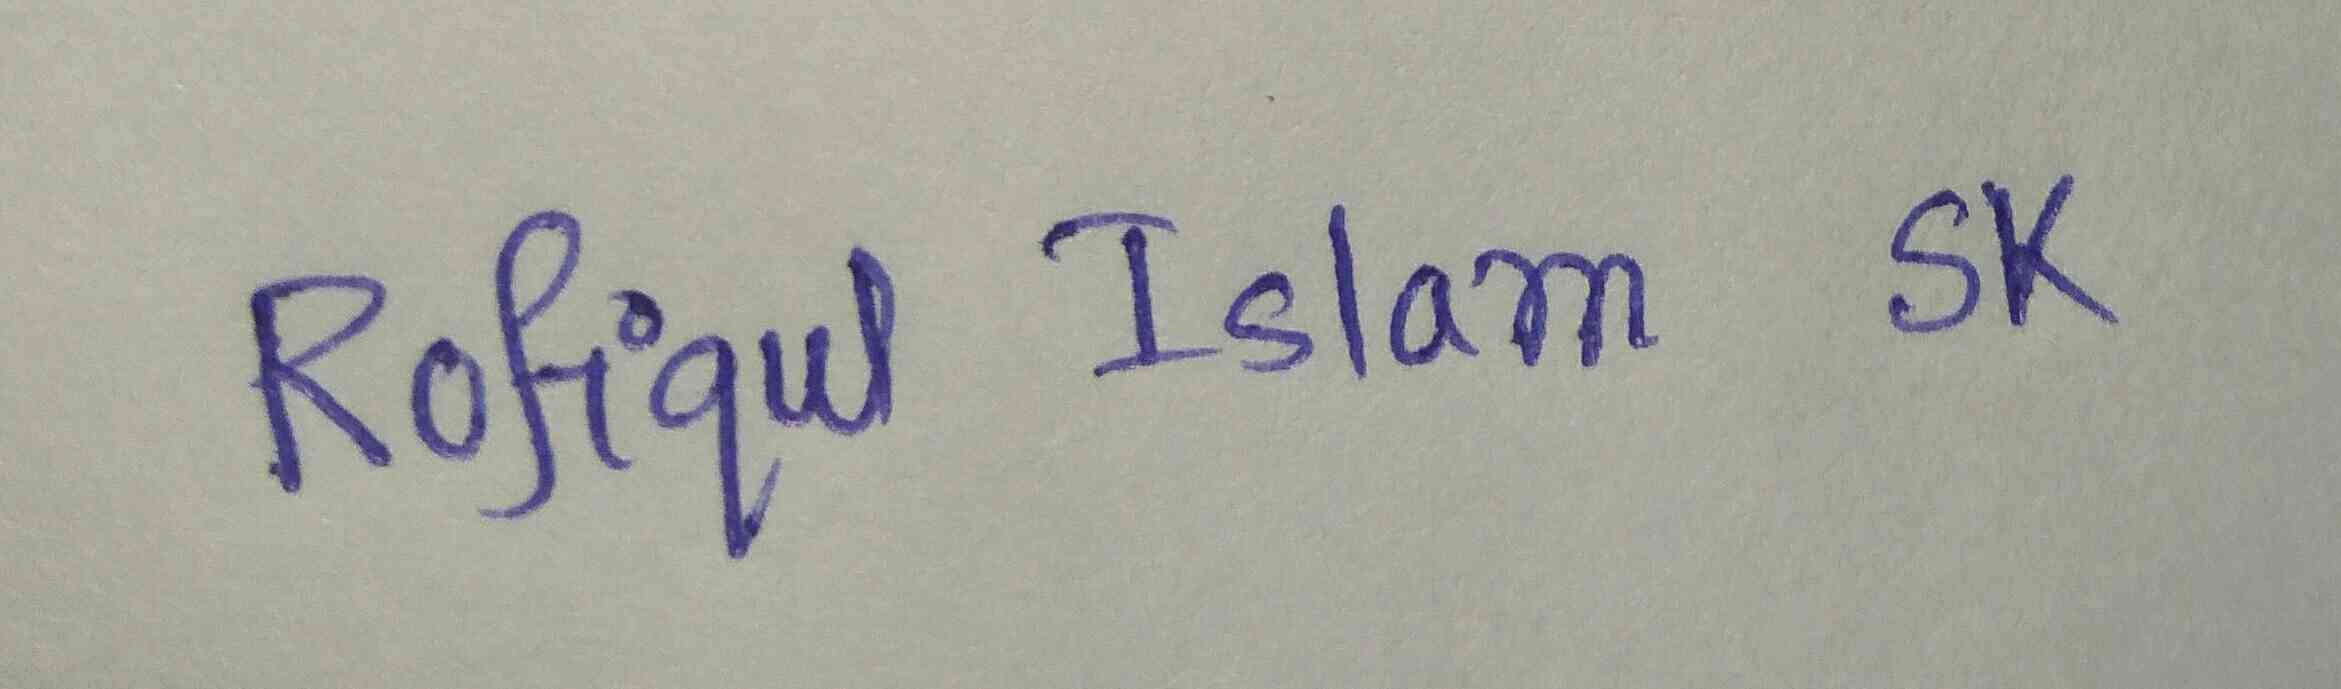 Rofiqul Islam SK